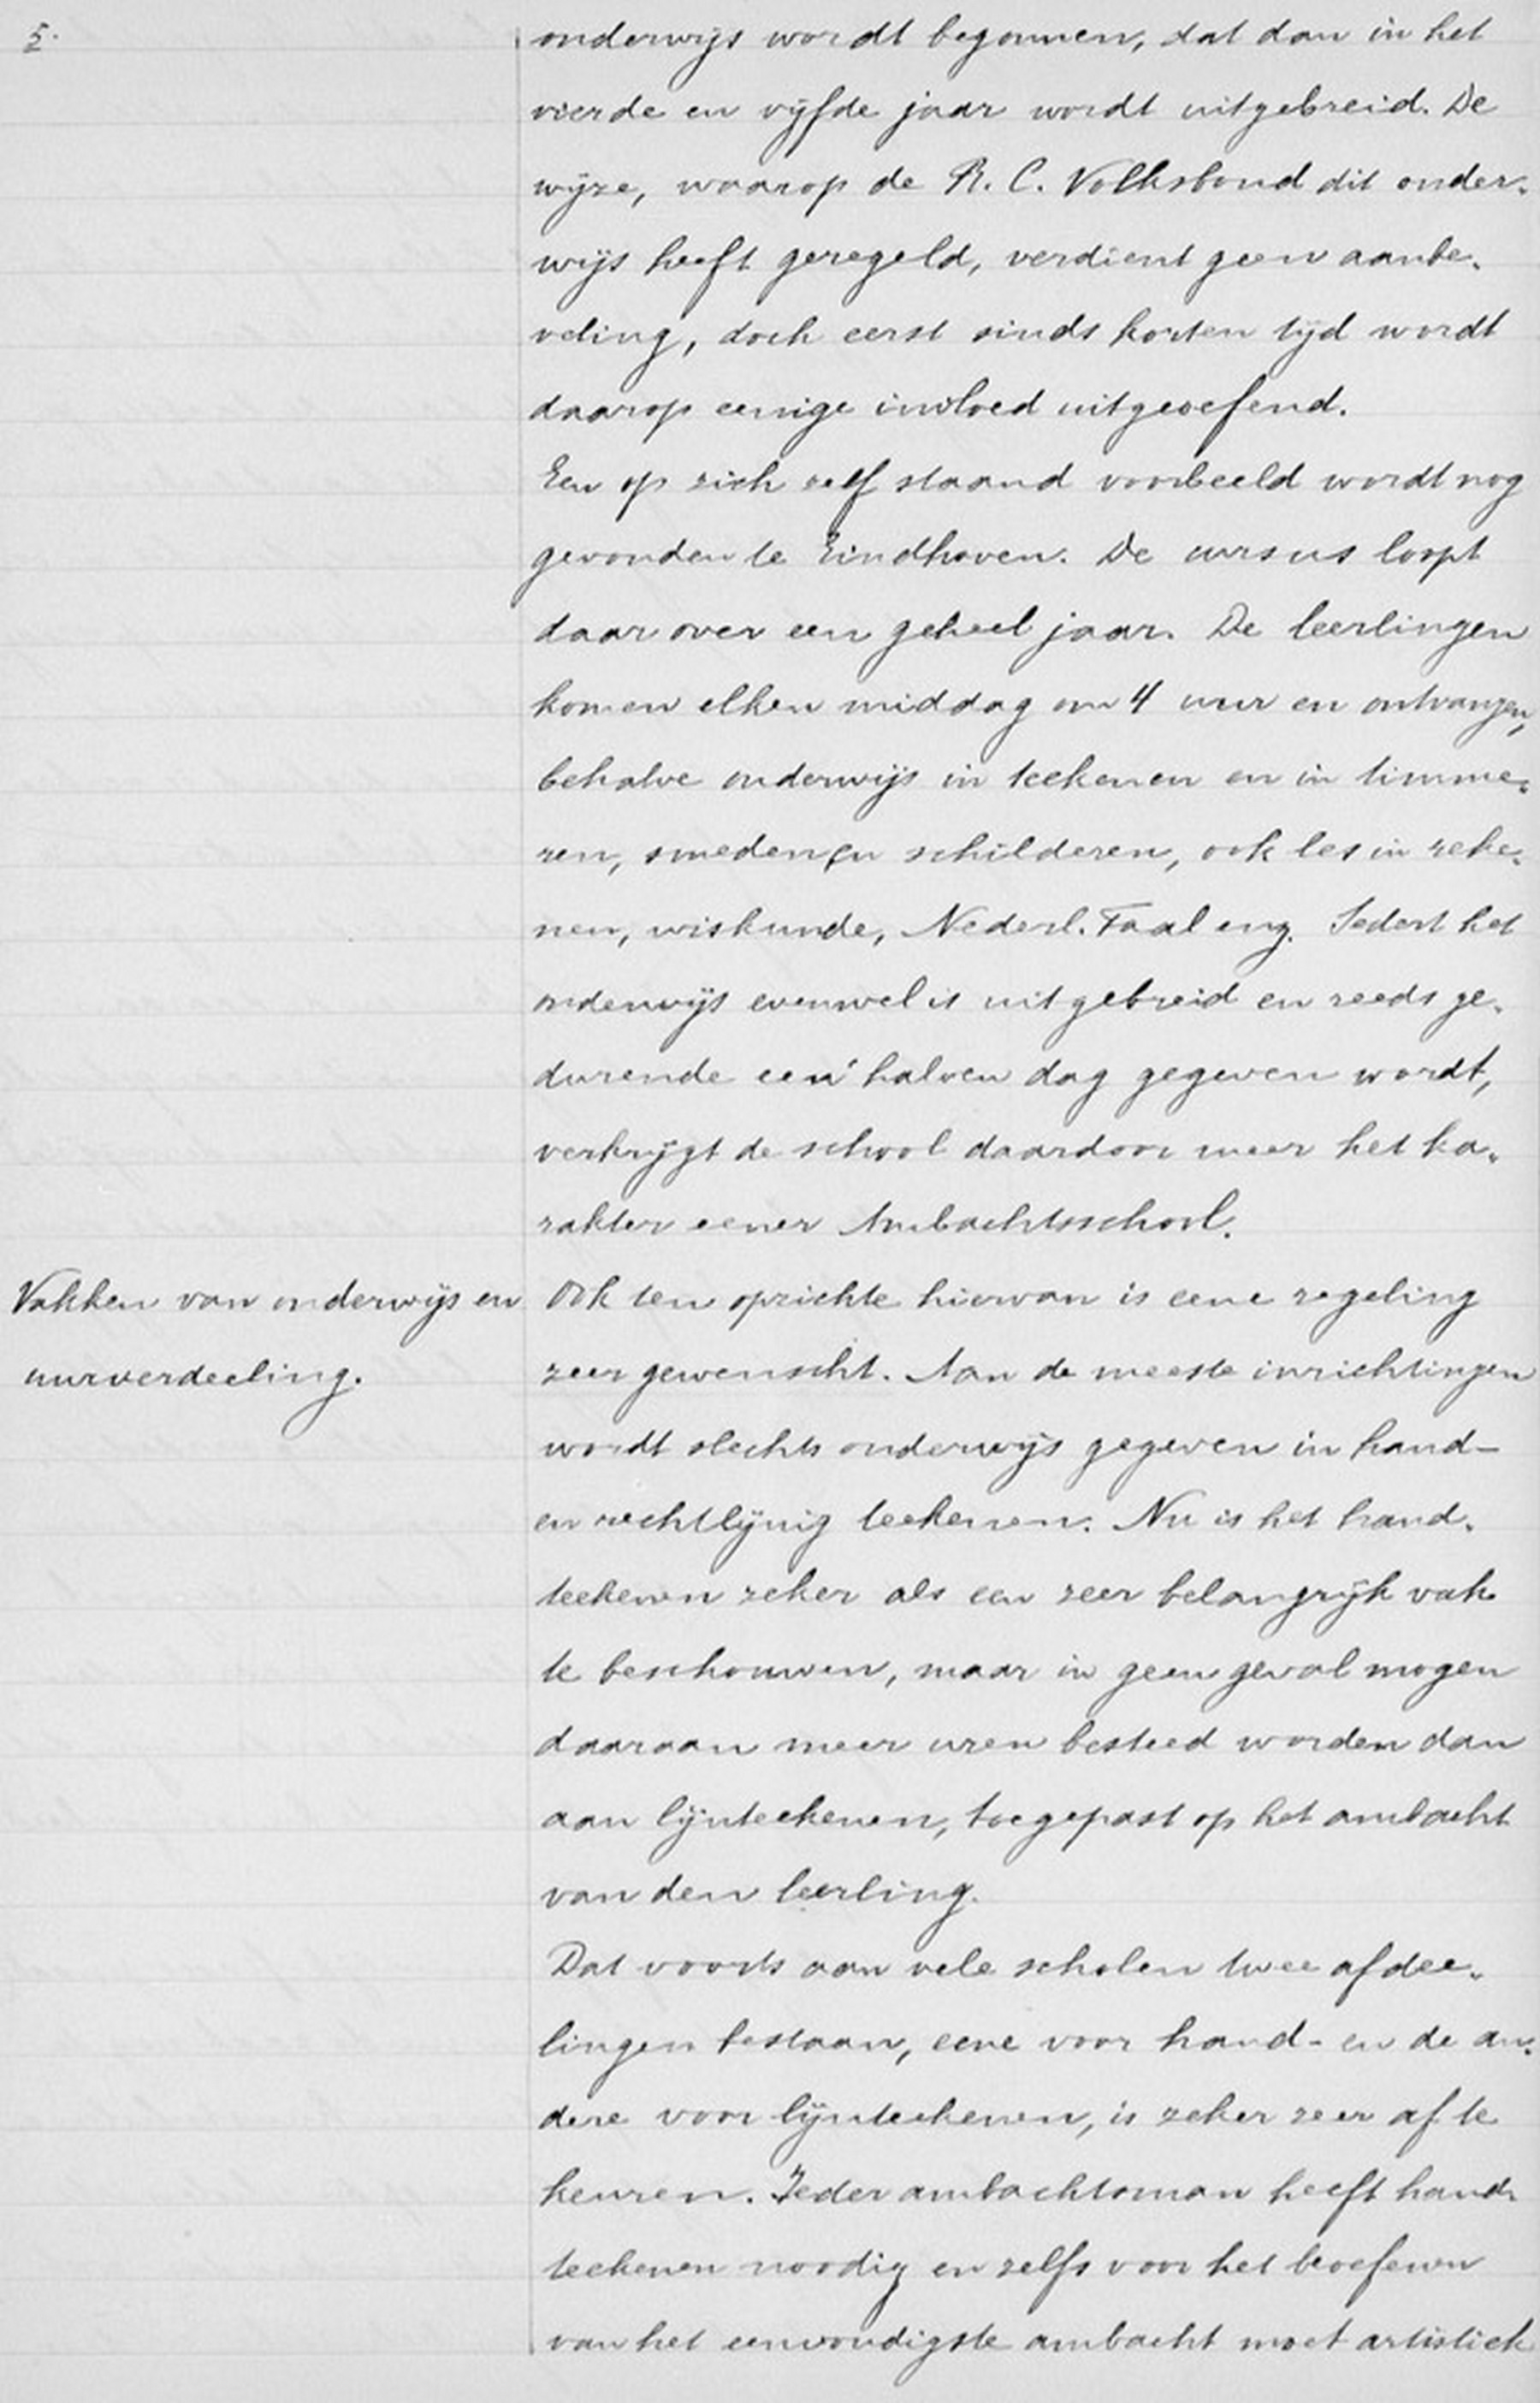 5.
onderwijs wordt begonnen, dat dan in het
vierde en vijfde jaar wordt uitgebreid. De
wijze, waarop de R. C. Volksbond dit onder-
wijs heeft geregeld, verdient geen aanbe-
veling, doch eerst sinds korten tijd wordt
daarop eenige invloed uitgeoefend.
Een op zich zelf staand voorbeeld wordt nog
gevonden te Eindhoven. De cursus loopt
daar over een geheel jaar. De leerlingen
komen elken middag om 4 uur en ontvangen,
behalve onderwijs in teekenen en in timme-
ren, smeden en schilderen, ook les in reke-
nen, wiskunde, Nederl. Taal enz. Sedert het
onderwijs evenwel is uitgebreid en reeds ge-
durende een halven dag gegeven wordt,
verkrijgt de school daardoor meer het ka-
rakter eener Ambachtsschool.
Vakken van onderwijs en
uurverdeeling.
Ook ten opzichte hiervan is eene regeling
zeer gewenscht. Aan de meeste inrichtingen
wordt slechts onderwijs gegeven in hand-
en rechtlijnig teekenen. Nu is het hand-
teekenen zeker als een zeer belangrijk vak
te beschouwen, maar in geen geval mogen
daaraan meer uren besteed worden dan
aan lijnteekenen, toegepast op het ambacht
van den leerling.
Dat voorts aan vele scholen twee afdee-
lingen bestaan, eene voor hand- en de an-
dere voor lijnteekenen, is zeker zeer af te
keuren. Ieder ambachtsman heeft hand-
teekenen noodig en zelfs voor het beoefenen
van het eenvoudigste ambacht moet artistiek